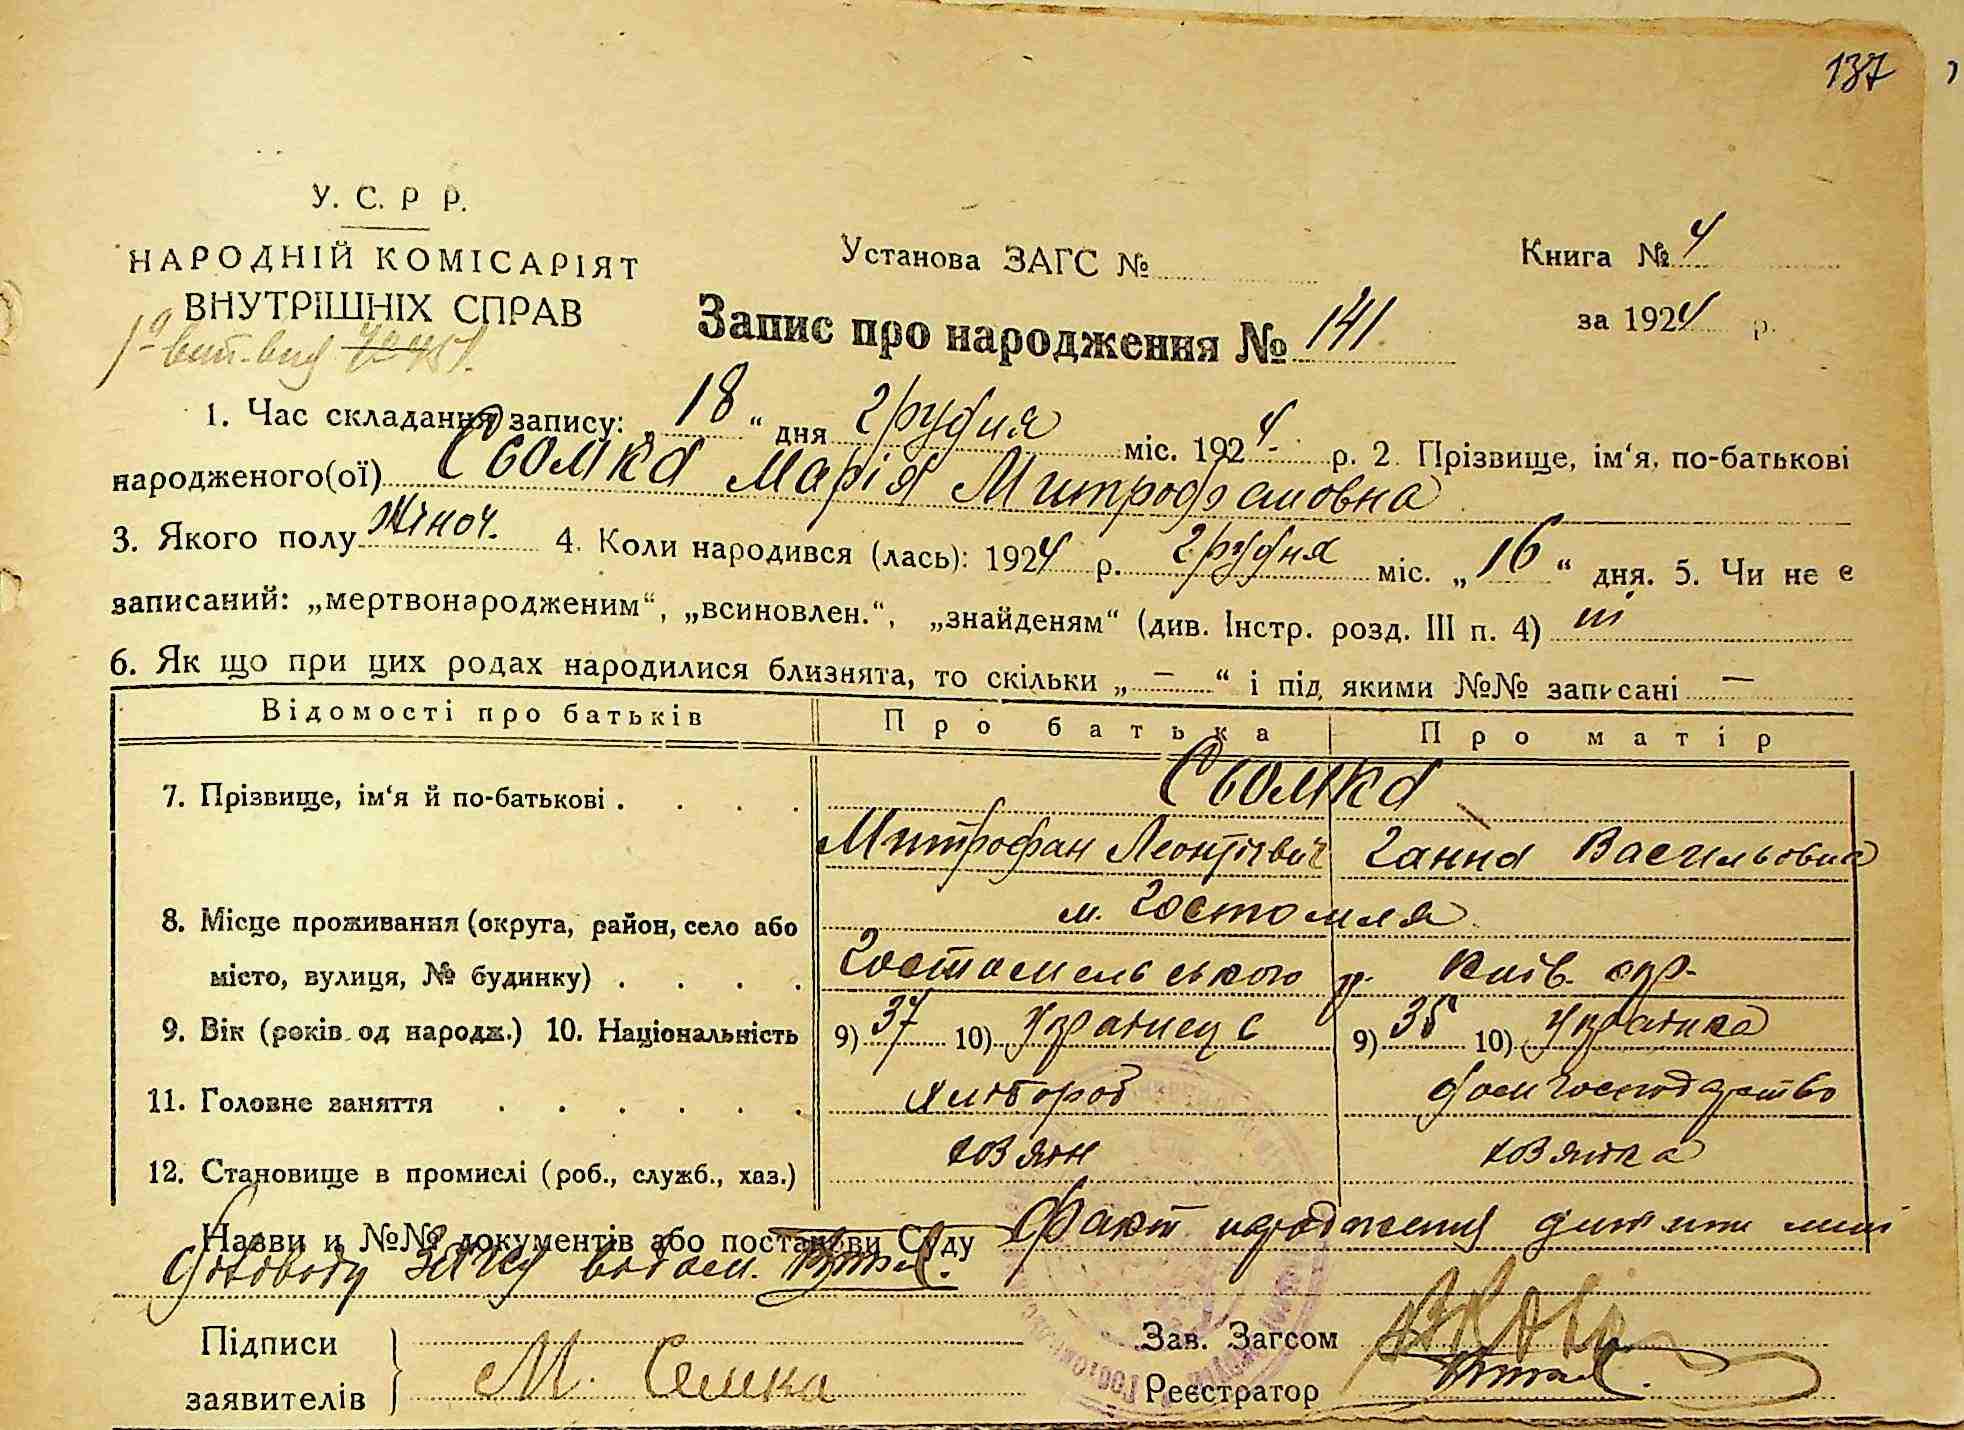 137
У. С. Р Р.
НАРОДНІЙ КОМІСАРІЯТ
ВНУТРІШНІХ СПРАВ
Установа ЗАГС №
Книга № 4
за 1924 р.
Запис про народження № 141.
1. Час складання запису: „ 18 “ дня грудня міс. 1924 р. 2. Прізвище, ім‘я, по-батькові
народженого(ої) Сьомка Марія Митрофановна
3. Якого полу жіноч. 4. Коли народився (лась): 1924 р. грудня міс. „ 16 “ дня. 5. Чи не є
записаний: „мертвонародженим“, „всиновлен.“, „знайденям“ (див. Інстр. розд. III п. 4) ні
6. Як що при цих родах народилися близнята, то скільки „ — “ і під якими №№ записані —
Відомості про батьків Про батька Про матір
7. Прізвище, ім‘я й по-батькові . . . . Сьомка
Митрофан Леонтієвич Ганна Васильовна
8. Місце проживання (округа, район, село або м. Гостомля
місто, вулиця, № будинку) . . . . Гостомельського р. Київ. окр.
9. Вік (років од народж.) 10. Національність 9) 37 10) Українец 9) 35 10) Українка
11. Головне заняття . . . . . . хлібороб дом господарство
12. Становище в промислі (роб., служб., хаз.)
Назви и №№ документів або постанови Суду Факт народження дитини мені
Підписи
заявителів
М. Семка
Зав. Загсом
Реєстратор